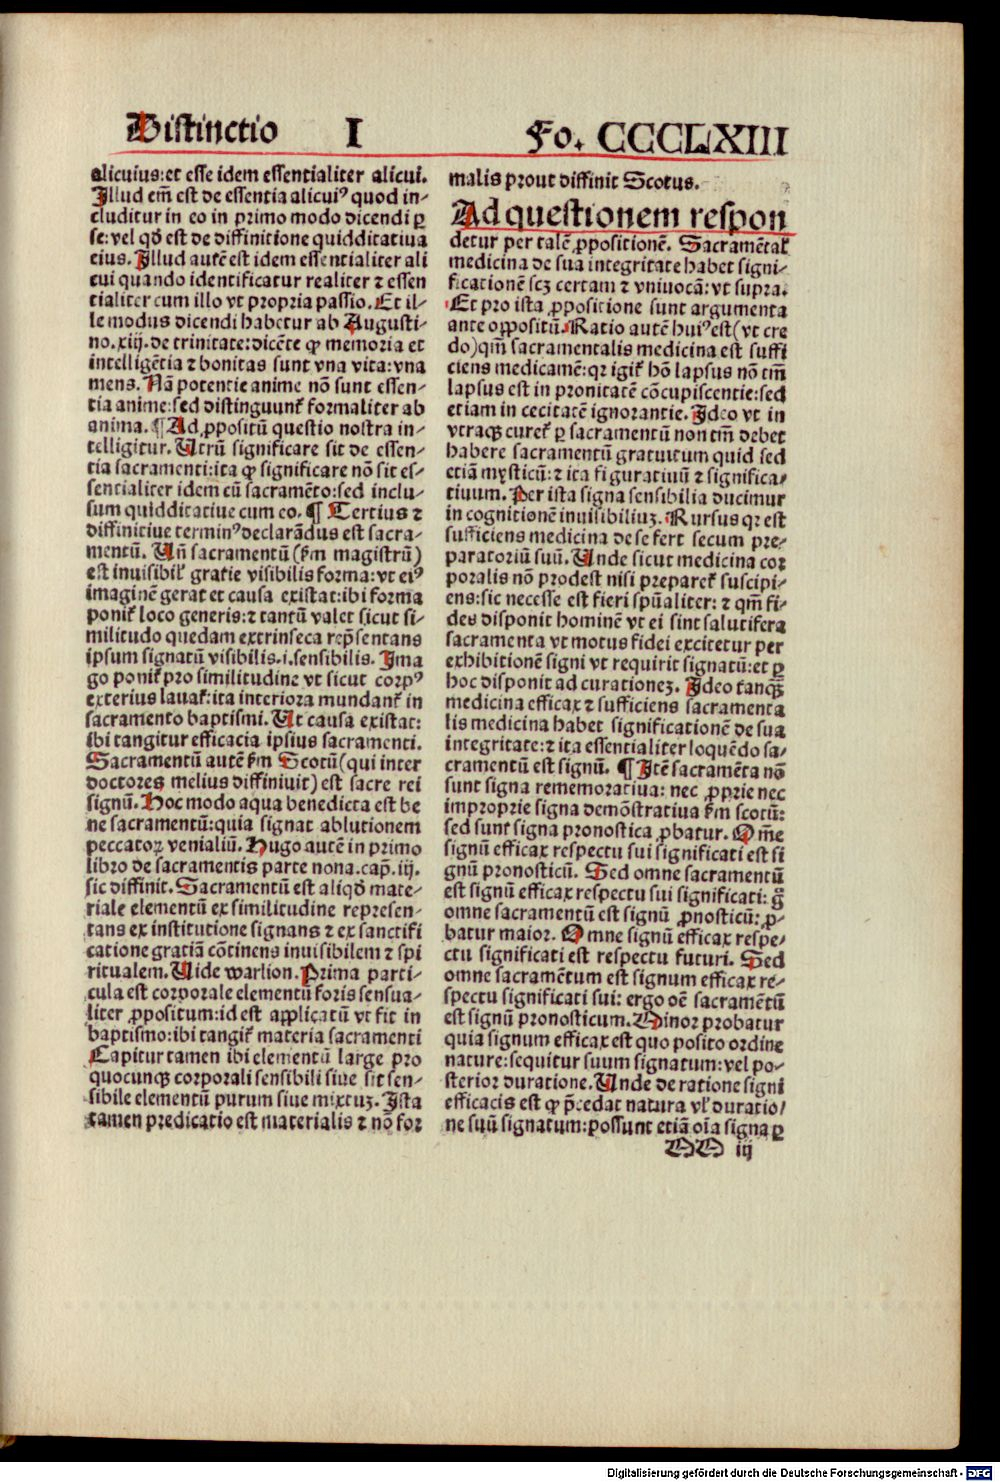 Distinctio I Fo. CCCCLXIII
alicuius:et esse idem essentialiter alicui.
Illud em̃ est de essentia alicuiꝰ quod in-
cluditur in eo in primo modo dicendi ꝑ
se: vel qd̃ est de diffinitione quidditatiua
eius. Illud autẽ est idem essentialiter ali
cui quando identificatur realiter ⁊ essen
tialiter cum illo vt propria passio. Et il-
le modus dicendi habetur ab Augusti-
no.xiij.de trinitate:dicẽte ꝙ memoria et
intelligẽtia ⁊ bonitas sunt vna vita:vna
mens. Nã potentie anime nõ sunt essen-
tia anime:sed distinguunt᷑ formaliter ab
anima. ¶ Ad ꝓpositũ questio nostra in-
telligitur. Utrũ significare sit de essen-
tia sacramenti:ita ꝙ significare nõ sit es-
sentialiter idem cũ sacramẽto:sed inclu-
sum quidditatiue cum eo. ¶ Tertius ⁊
diffinitiue terminꝰ declarãdus est sacra-
mentũ. Uñ sacramentũ (ẜm magistrũ)
est inuisibil᷑ gratie visibilis forma:vt eiꝰ
imaginẽ gerat et causa existat:ibi forma
ponit᷑ loco generis:⁊ tantũ valet sicut si-
militudo quedam extrinseca rep̃sentans
ipsum signatũ visibilis.i.sensibilis. Ima
go ponit᷑ pro similitudine vt sicut corpꝰ
exterius lauat᷑:ita interiora mundant᷑ in
sacramento baptismi. Ut causa existat:
ibi tangitur efficacia ipsius sacramenti.
Sacramentũ autẽ ẜm Scotũ (qui inter
doctores melius diffiniuit) est sacre rei
signũ. Hoc modo aqua benedicta est be
ne sacramentũ:quia signat ablutionem
peccatoꝝ venialiũ. Hugo autẽ in primo
libro de sacramentis parte nona.cap̃.iij.
sic diffinit. Sacramentũ est aliqd̃ mate-
riale elementũ ex similitudine represen-
tans ex institutione signans ⁊ ex sanctifi
catione gratiã cõtinens inuisibilem ⁊ spi
ritualem. Uide warlion. Prima parti-
cula est corporale elementũ foris sensua-
liter ꝓpositum:id est applicatũ vt fit in
baptismo:ibi tangit᷑ materia sacramenti
Capitur tamen ibi elementũ large pro
quocunqꝫ corporali sensibili siue sit sen-
sibile elementũ purum siue mixtuꝫ. Ista
tamen predicatio est materialis ⁊ nõ for
malis prout diffinit Scotus.
Ad questionem respon
detur per talẽ ꝓpositionẽ. Sacramẽtal᷑
medicina de sua integritate habet signi-
ficationẽ scꝫ certam ⁊ vniuocã: vt supra.
Et pro ista ꝓpositione sunt argumenta
ante oppositũ. Ratio autẽ huiꝰ est (vt cre
do) qm̃ sacramentalis medicina est suffi
ciens medicamẽ:qꝛ igit᷑ hõ lapsus nõ tm̃
lapsus est in pronitatẽ cõcupiscentie:sed
etiam in cecitatẽ ignorantie. Ideo vt in
vtraqꝫ curet᷑ ꝑ sacramentũ non tm̃ debet
habere sacramentũ gratuitum quid sed
etiã mysticũ: ⁊ ita figuratiuũ ⁊ significa-
tiuum. Per ista signa sensibilia ducimur
in cognitionẽ inuisibiliuꝫ. Rursus qꝛ est
sufficiens medicina de se fert secum pre-
paratoriũ suũ. Unde sicut medicina cor
poralis nõ prodest nisi preparet᷑ suscipi-
ens:sic necesse est fieri spũaliter: ⁊ qm̃ fi-
des disponit hominẽ vt ei sint salutifera
sacramenta vt motus fidei excitetur per
exhibitionẽ signi vt requirit signatũ:et ꝑ
hoc disponit ad curationeꝫ. Ideo tanqꝫ̃
medicina efficax ⁊ sufficiens sacramenta
lis medicina habet significationẽ de sua
integritate: ⁊ ita essentialiter loquẽdo sa-
cramentũ est signũ. ¶ Itẽ sacramẽta nõ
sunt signa rememoratiua: nec ꝓprie nec
improprie signa demõstratiua ẜm scotũ:
sed sunt signa pronostica ꝓbatur. Om̃e
signũ efficax respectu sui significati est si
gnũ pronosticũ. Sed omne sacramentũ
est signũ efficax respectu sui significati: g̃
omne sacramentũ est signũ ꝓnosticũ: ꝓ-
batur maior. Omne signũ efficax respe-
ctu significati est respectu futuri. Sed
omne sacramẽtum est signum efficax re-
spectu significati sui: ergo oẽ sacramẽtũ
est signũ pronosticum. Minor probatur
quia signum efficax est quo posito ordine
nature:sequitur suum signatum:vel po-
sterior duratione. Unde de ratione signi
efficacis est ꝙ p̃cedat natura vl᷑ duratio-
ne suũ signatum:possunt etiã oĩa signa ꝑ
OO iij
Digitalisierung gefördert durch die Deutsche Forschungsgemeinschaft - DFG